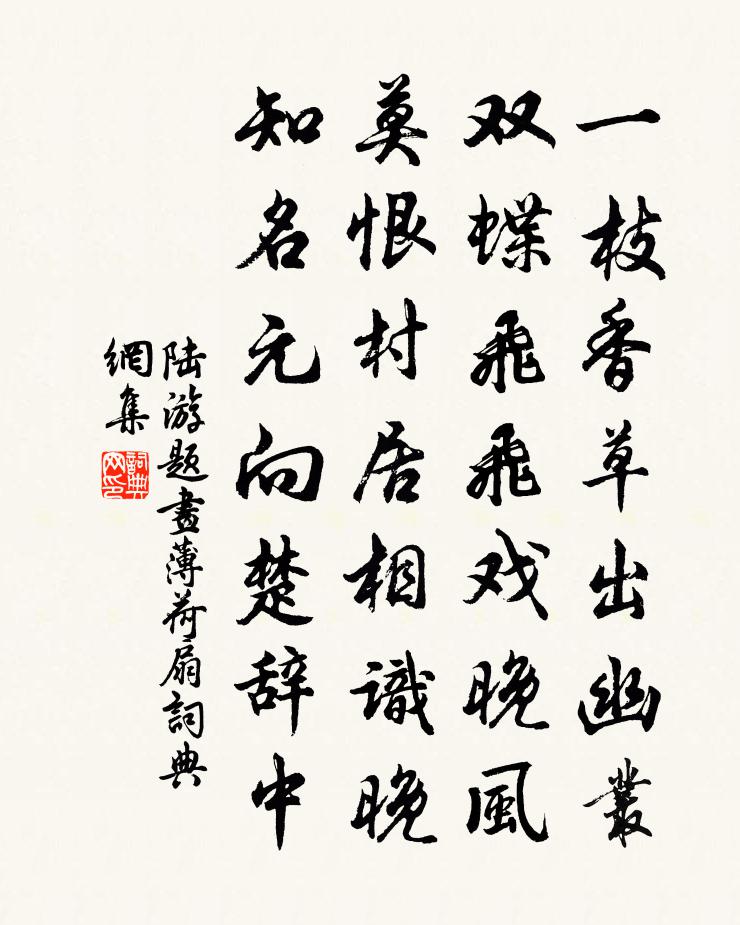 一枝香草出幽叢
双蝶飛飛戏晚風
莫恨村居相識晚
知名元向楚辞中
陆游题畫薄荷扇詞典
網集
詞典
网印